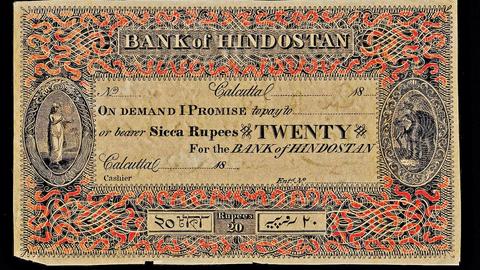 BANK of HINDOSTAN
No Calcutta 18
ON DEMAND I PROMISE to pay to
or bearer Sicca Rupees TWENTY
For the BANK of HINDOSTAN
Calcutta 18
Cashier Entd. No
Rupees
20